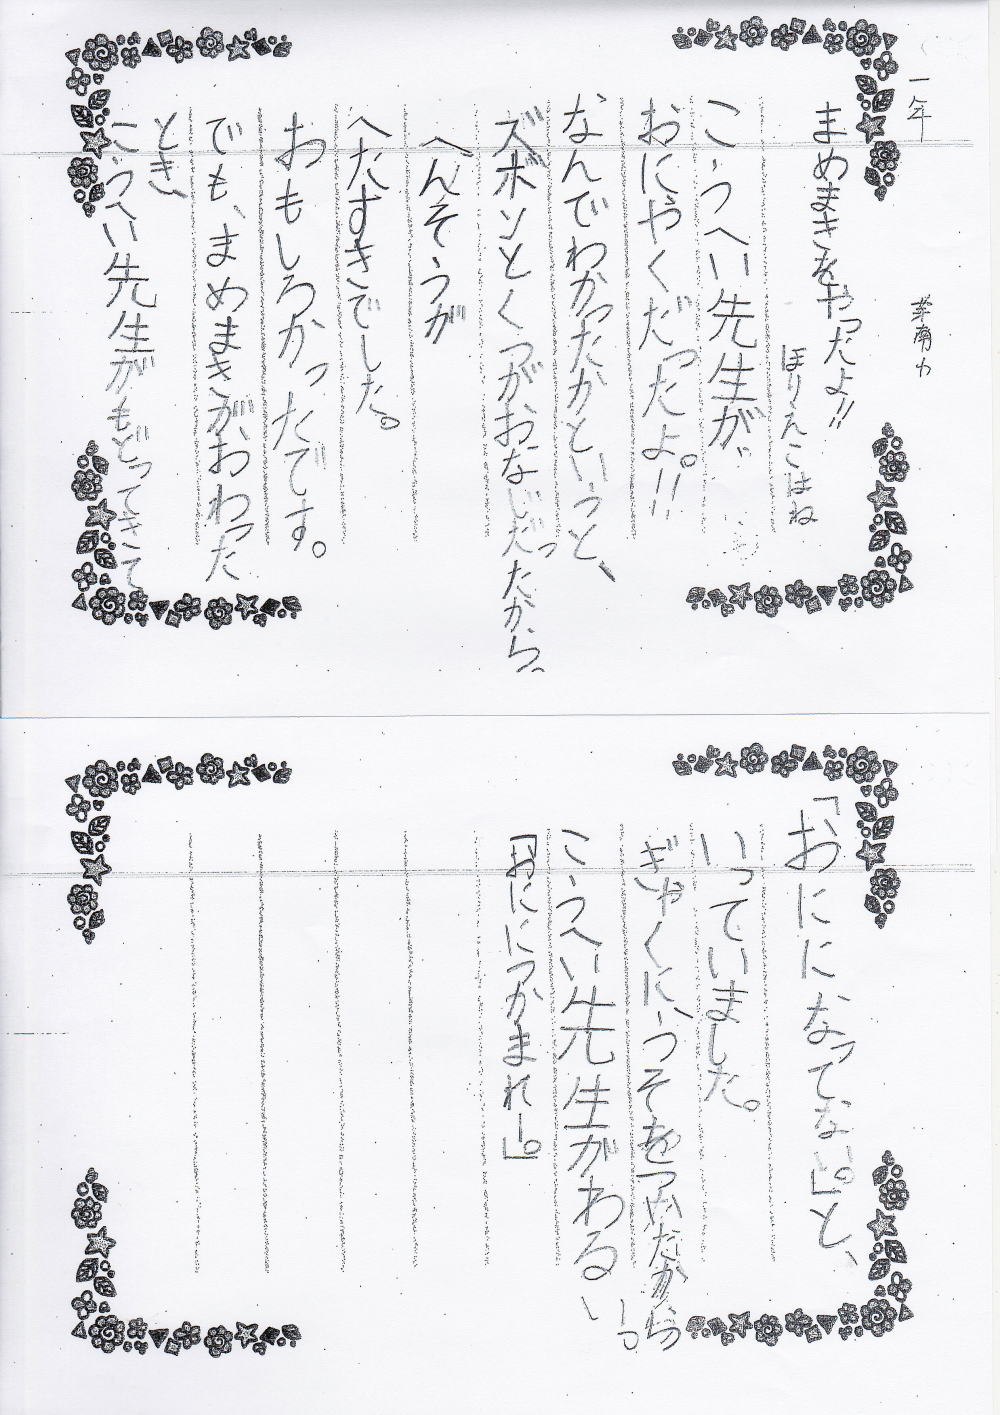 一年
まめまきをやったよ!!
ほりえこはね
こうへい先生が
おにやくだったよ。!!
なんでわかったかというと、
ズボンとくつがおなじだったから、
へんそうが
へたすぎでした。
おもしろかったです。
でも、まめまきが、おわった
とき、
こうへい先生がもどってきて
「おにになってない。」と、
いっていました。
ぎゃくに、うそをついたから
こうへい先生がわるいっ。
「おににつかまれー」。